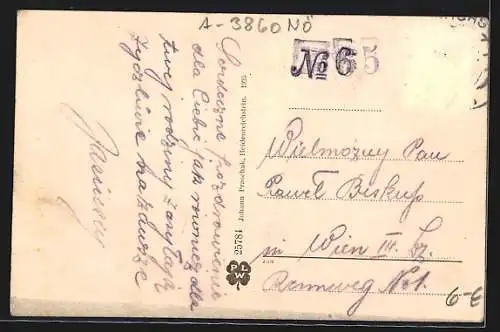 A-3860 NÖ
№ 65
Serdeczne pozdrowienie
dla Ciebie jak również dla
twej rodziny
Wielmożny Pan
Paweł Biskup
in Wien III. Bz.
Rennweg No 1.
25781 Johann Praschak, Heidenreichstein. 1925
PLW
6-E